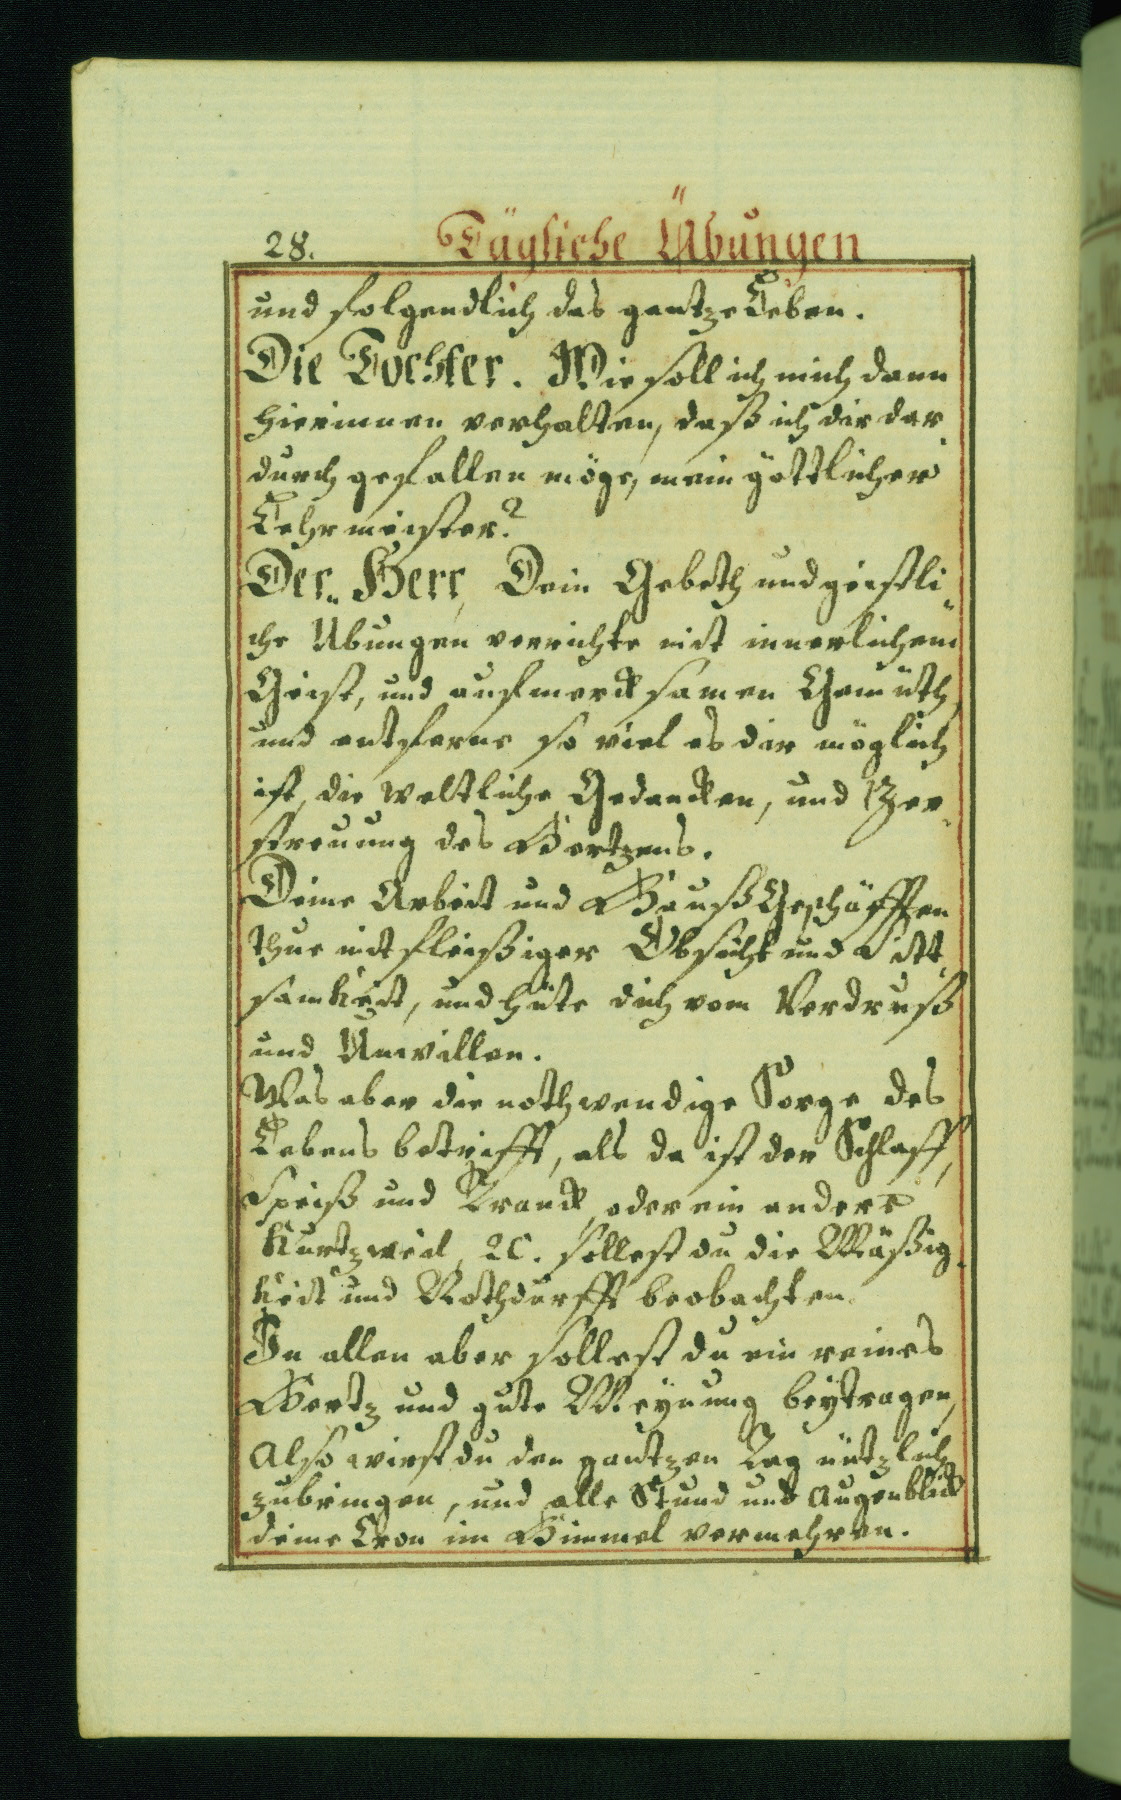 28. Tägliche Übungen
und folgendlich das gantze Leben.
Die Tochter. Wie soll ich mich dann
hierinnen verhalten, daß ich dir dar
durch gefallen möge, mein göttlicher
Lehrmeister?
Der Herr, Dein Gebeth und geistli
che Übungen verrichte mit innerlichem
Geist, und aufmercksamen Gemüth,
und entferne so viel es dir möglich
ist, die weltliche Gedancken, und Zer
streuung des Hertzens.
Deine Arbeit und Hauß Geschäfften
thue mit fleißiger Obsicht und Sitt
samkeit, und hüte dich vom Verdruß
und Unwillen.
Was aber die nothwendige Sorge des
Lebens betrifft, als da ist der Schlaff,
Speiß und Tranck, oder ein andere
Kurtzweil, ꝛc. sollest du die Mäßig
keit und Nothdurfft beobachten.
In allen aber sollest du ein reines
Hertz und gute Meynung beytragen,
Also wirst du den gantzen Tag nützlich
zubringen, und alle Stund und Augenblick
deine Cron im Himmel vermehren.